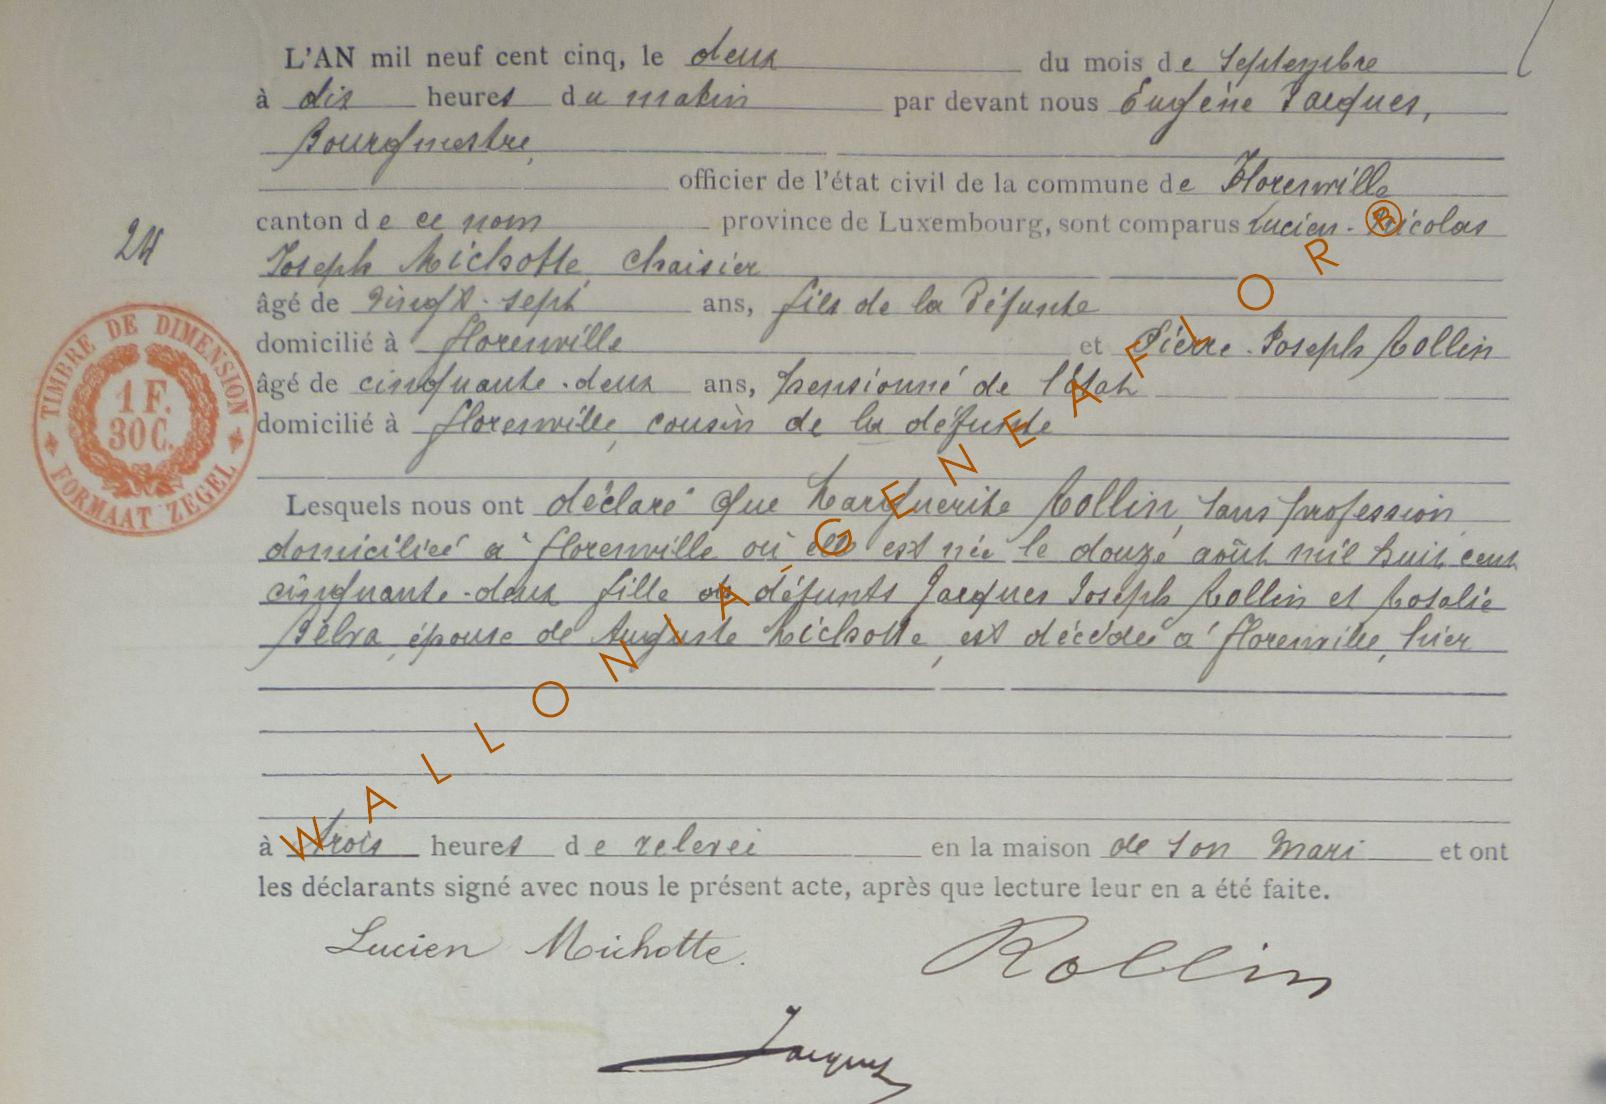 L'AN mil neuf cent cinq, le deux du mois de Septembre
à dix heures du matin par devant nous Eugène Jacques,
Bourgmestre,
officier de l'état civil de la commune de Florenville
canton de ce nom province de Luxembourg, sont comparus Lucien-Nicolas
24
Joseph Michotte, chaisier
âgé de vingt-sept ans, fils de la Défunte
domicilié à florenville et Pierre-Joseph Rollin
âgé de cinquante-deux ans, pensionné de l'État
domicilié à florenville, cousin de la défunte
Lesquels nous ont déclaré que Marguerite Rollin, sans profession
domiciliée à florenville où elle est née le douze août mil huit cent
cinquante-deux fille de défunts Jacques Joseph Rollin et Rosalie
épouse de Auguste Michotte, est décédée à florenville, hier
à trois heures de relevée en la maison de son mari et ont
les déclarants signé avec nous le présent acte, après que lecture leur en a été faite.
Lucien Michotte.
Rollin
Jacques
TIMBRE DE DIMENSION
1 F.
30 C.
FORMAAT ZEGEL
WALLONIA-GENEAFLOR®